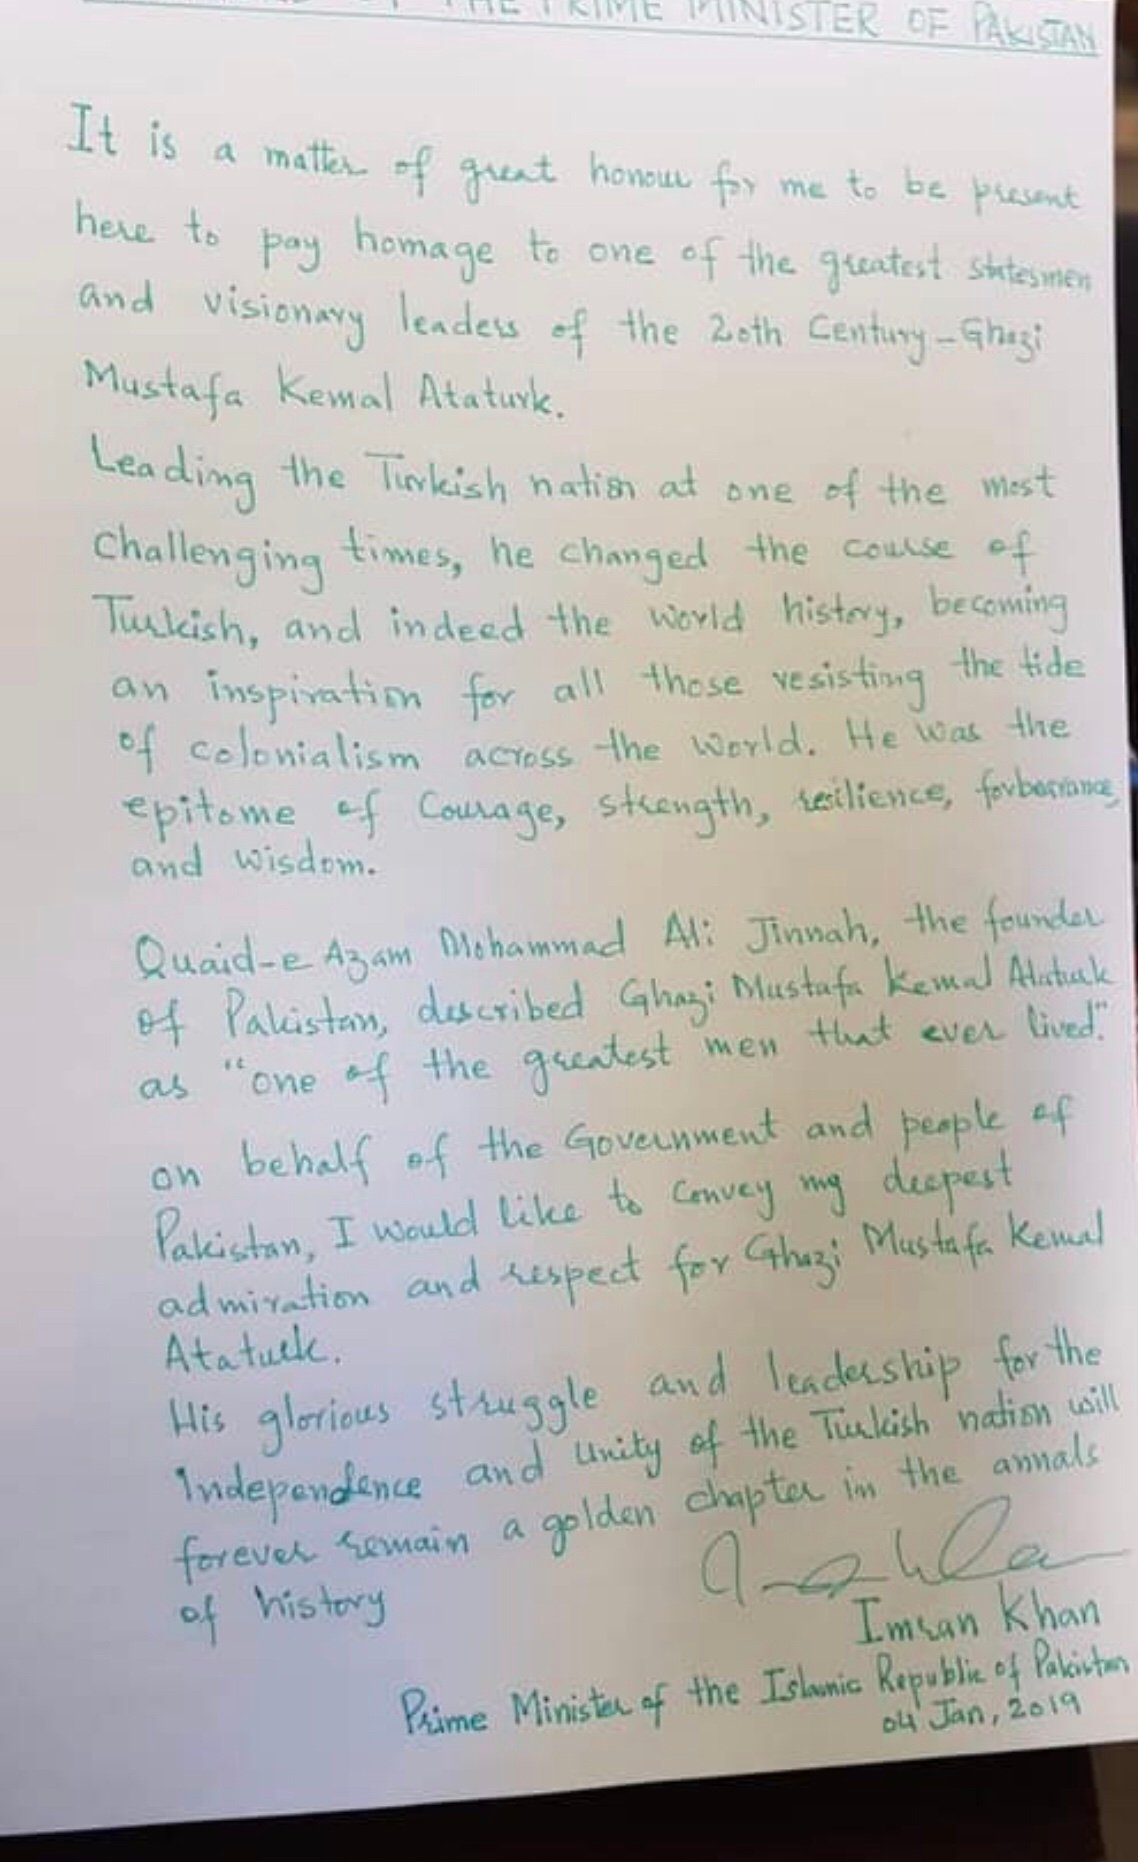 THE PRIME MINISTER OF PAKISTAN
It is a matter of great honour for me to be present
here to pay homage to one of the greatest statesmen
and visionary leaders of the 20th Century - Ghazi
Mustafa Kemal Ataturk.
Leading the Turkish nation at one of the most
challenging times, he changed the course of
Turkish, and indeed the world history, becoming
an inspiration for all those resisting the tide
of colonialism across the world. He was the
epitome of Courage, strength, resilience, forbearance,
and wisdom.
Quaid-e Azam Mohammad Ali Jinnah, the founder
of Pakistan, described Ghazi Mustafa Kemal Ataturk
as "one of the greatest men that ever lived."
on behalf of the Government and people of
Pakistan, I would like to convey my deepest
admiration and respect for Ghazi Mustafa Kemal
Ataturk.
His glorious struggle and leadership for the
Independence and Unity of the Turkish nation will
forever remain a golden chapter in the annals
of history
Imran Khan
Prime Minister of the Islamic Republic of Pakistan
04 Jan, 2019